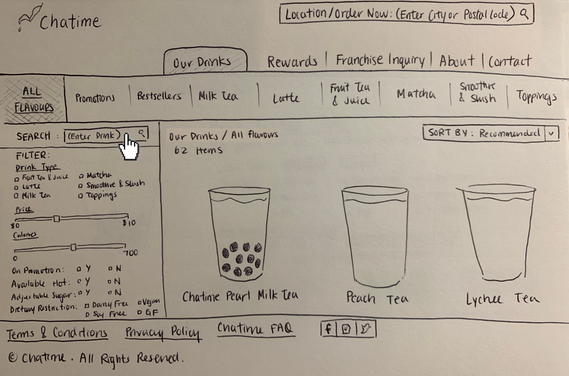 Chatime
Location/Order Now: (Enter City or Postal Code)
Our Drinks | Rewards | Franchise Inquiry | About | Contact
ALL FLAVOURS | Promotions | Bestsellers | Milk Tea | Latte | Fruit Tea & Juice | Matcha | Smoothie & Slush | Toppings
SEARCH: (Enter Drink)
Our Drinks / All flavours
SORT BY: Recommended
62 Items
FILTER:
Drink Type
Fruit Tea & Juice
Matcha
Latte
Smoothie & Slush
Milk Tea
Toppings
Price
$0 $10
Calories
0 700
On Promotion: Y N
Available Hot: Y N
Adjustable Sugar: Y N
Dietary Restriction: Dairy Free Vegan
Soy Free GF
Chatime Pearl Milk Tea
Peach Tea
Lychee Tea
Terms & Conditions Privacy Policy Chatime FAQ
f
© Chatime. All Rights Reserved.